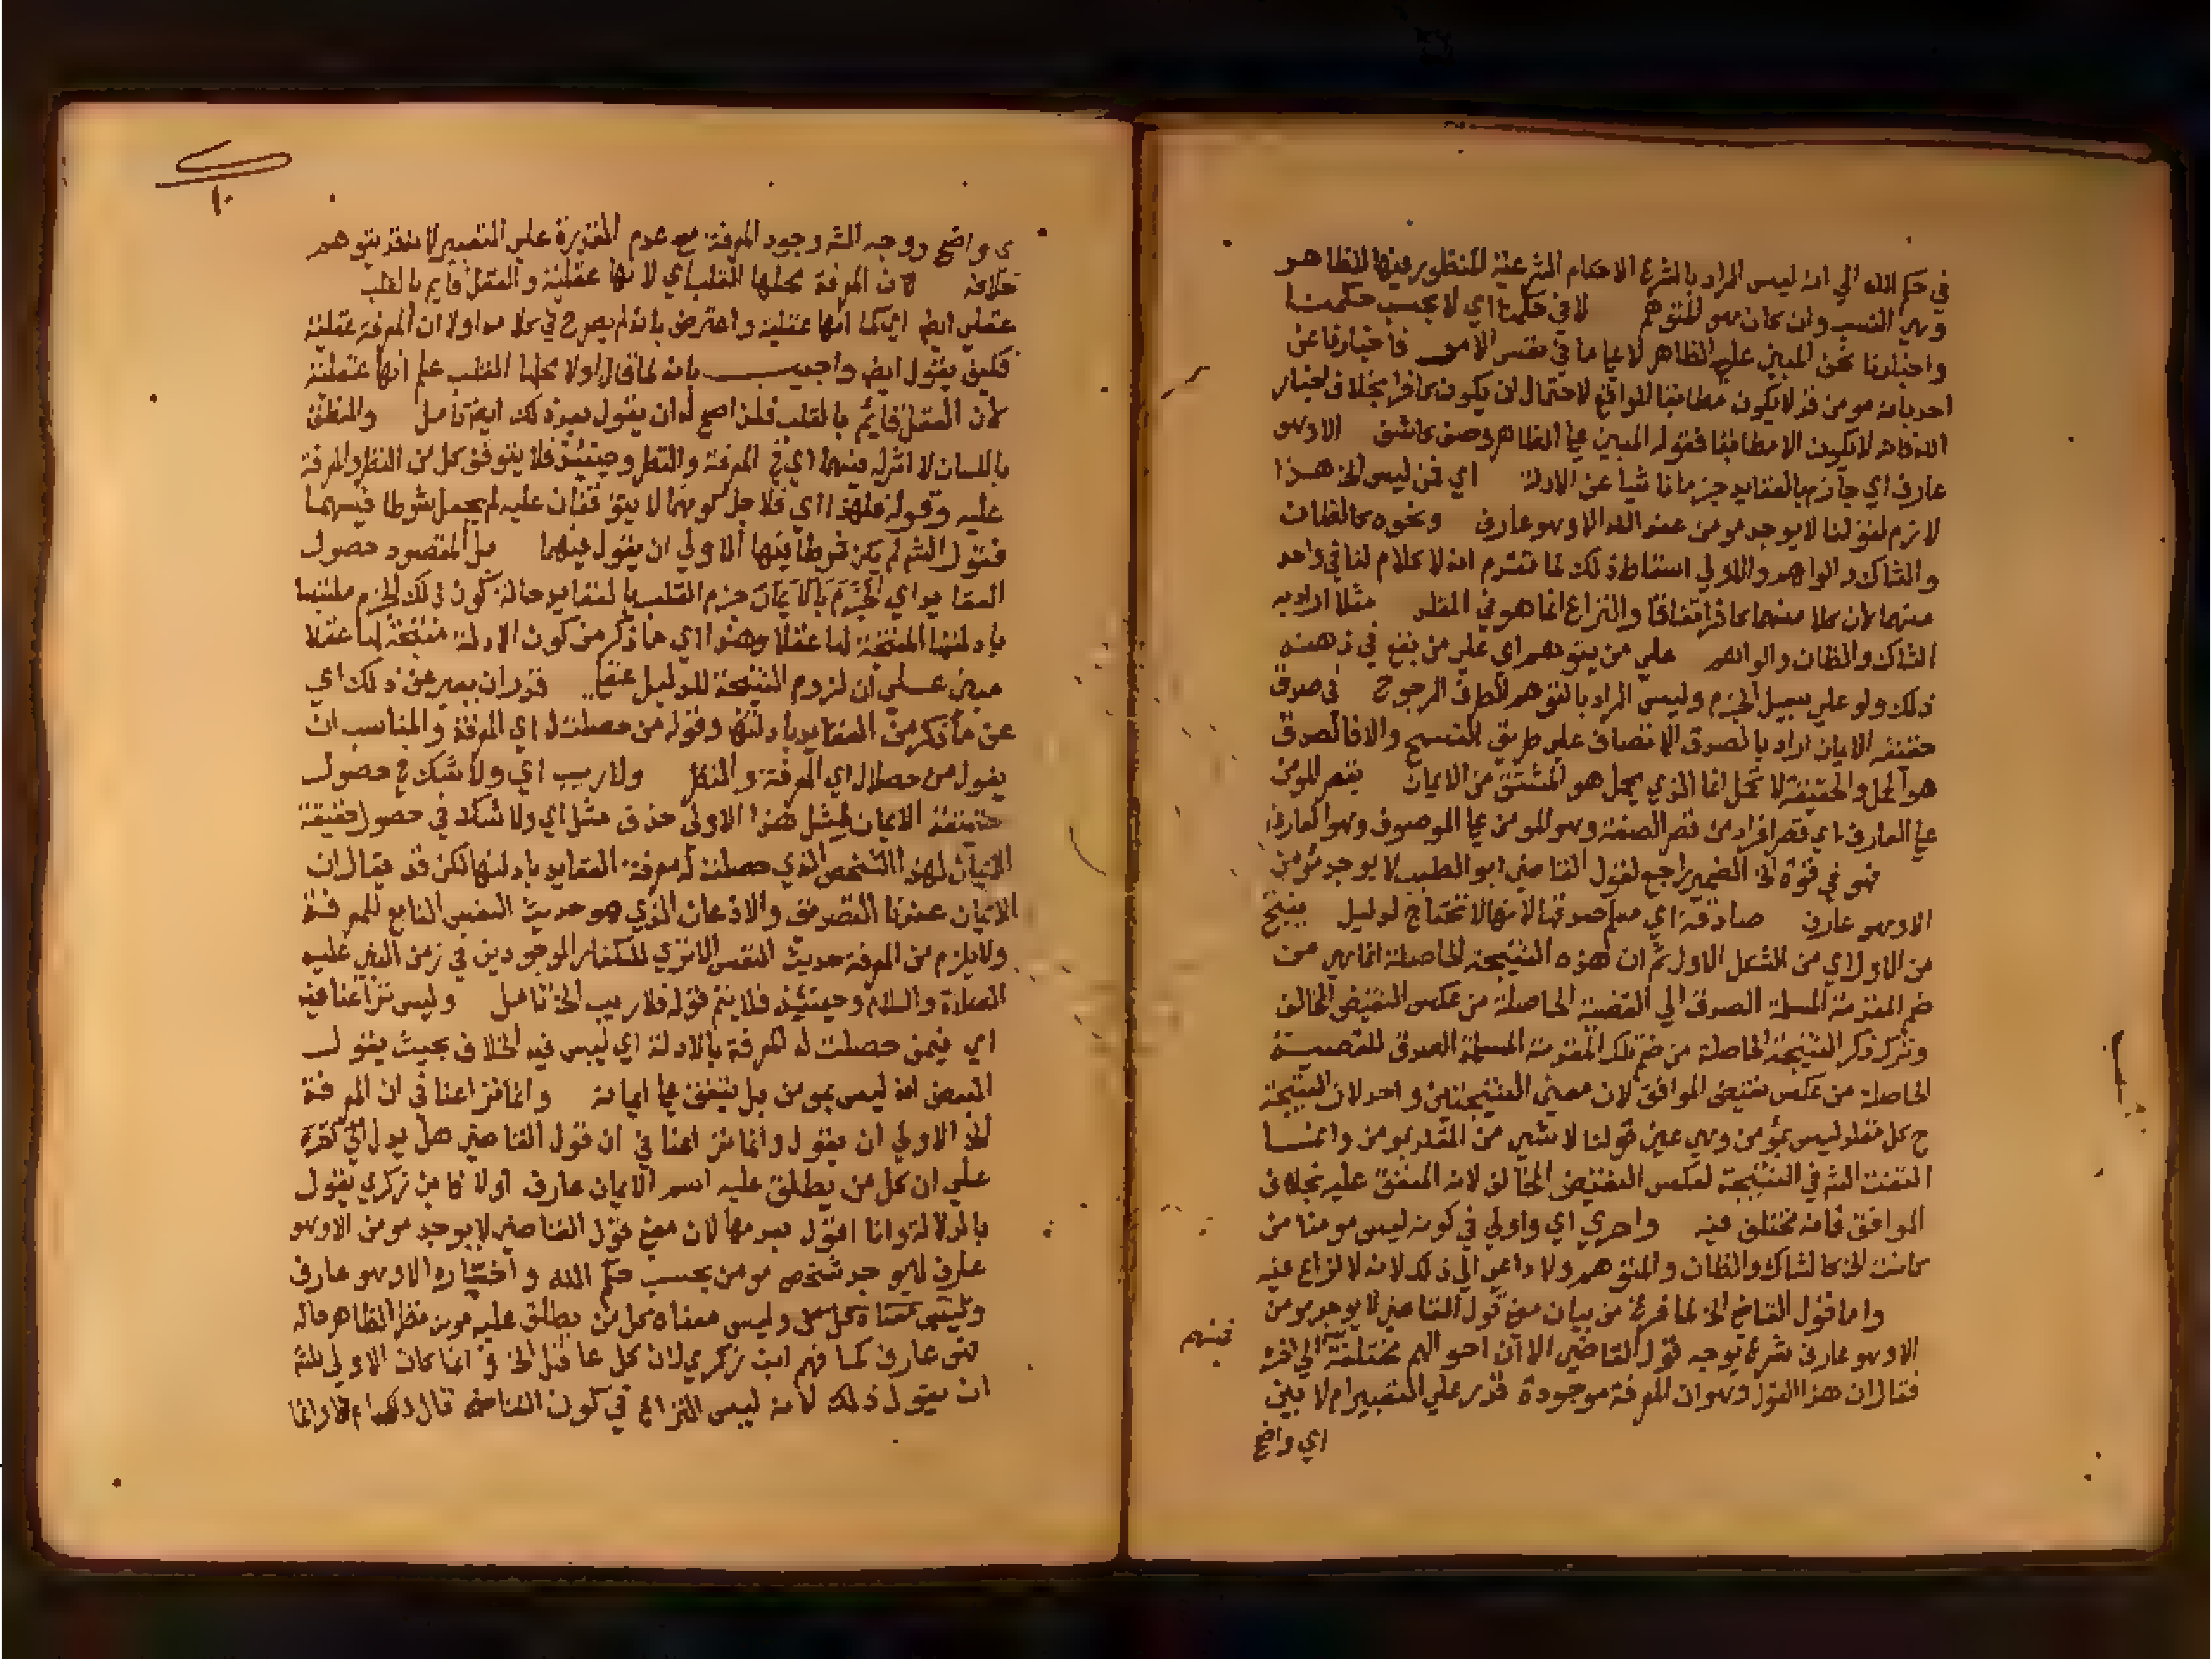 في حكم الله الي انه ليس المراد بالشرع الاحكام الشرعية المنظور فيها للظاهر
وهي النسب وان كان هو المتوهم لا في حكمنا اي لا بحسب حكمنا
واخبارنا نحن المبني علي الظاهر لا علي ما في نفس الامر فأخبارنا عن
احد بانه مومن قد لا يكون مطابقا للواقع لاحتمال ان يكون كافرا بخلاف اخبار
الله فانه لا يكون الا مطابقا فقوله المبني علي الظاهر وصف كاشف الا وهو
عارف اي جازم بالعقايد جزما ناشيا عن الادلة اي فمن ليس الخ هذا
لازم لقولنا لا يوجد مومن عند الله الا وهو عارف ونحوه كالظان
والشاك والواهم والاولي اسقاط ذلك لما تقدم انه لا كلام لنا في واحد
منهما لان كلا منهما كافر اتفاقا والنزاع انما هو في المقلد مثلا اراد به
الشاك والظان والواهم علي من يتوهم اي علي من يقع في ذهنه
ذلك ولو علي سبيل الجزم وليس المراد بالتوهم الطرف المرجوح في صدق
حقيقة الايمان اراد بالصدق الاتصاف علي طريق التسمح والا فالصدق
هو الحمل والحقيقة لا تحمل انما الذي يحمل هو المشتق من الايمان بقصر المومن
علي العارف اي قصر افراد من قصر الصفة وهو المومن علي الموصوف وهو العارف
فهو في قوة الخ الضمير راجع لقول القاضي ابو الطيب لا يوجد مومن
الا وهو عارف صادقة اي مسلم صدقها لانها لا تحتاج لدليل ينتج
من الاول اي من الشكل الاول ثم ان هذه النتيجة الحاصلة انما هي من
ضم المقدمة المسلمة الصدق الي القضية الحاصلة من عكس النقيض المخالف
وترك ذكر النتيجة الحاصلة من ضم تلك المقدمة المسلمة الصدق للقضية
الحاصلة من عكس نقيض الموافق لان معني النتيجتين واحد لان النتيجة
ح كل مقلد ليس بمؤمن وهي عين قولنا لا شي من المقلد بمومن وانما
التفت الشه في النتيجة لعكس النقيض المخالف لانه المتفق عليه بخلاف
الموافق فانه مختلف فيه واحري اي واولي في كونه ليس مومنا من
كانت الخ كالشاك والظان والمتوهم ولا داعي الي ذلك لانه لا نزاع فيه
واما قول القاضي الخ لما فرغ من بيان معني قول القاضي لا يوجد مومن
الا وهو عارف شرع يوجه قول القاضي الا ان احوالهم مختلفة الي اخره
فقال ان هذا القول وهو ان المعرفة موجودة قدر علي التعبير ام لا بين
اي واضح
ي واضح ووجه الشه وجود المعرفة مع عدم القدرة علي التعبير لانه قد يتوهم
خلافه لان المعرفة محلها القلب اي لانها عقلية والعقل قايم بالقلب
عقلي ايض اي كما انها عقلية واعترض بانه لم يصرح في كلامه اولا ان المعرفة عقلية
فكيف يقول ايض واجيب بانه لما قال اولا محلها القلب علم انها عقلية
لان العقل قائم بالقلب فلذا صح له ان يقول بعد ذلك ايض تامل والنطق
باللسان لا اثر له فيهما اي في المعرفة والنظر وحينئذ فلا يتوقف كل من النظر والمعرفة
عليه وقوله فلهذا اي فلاجل كونهما لا يتوقفان عليه لم يجعل شرطا فيهما
فقول الشه لم يكن شرطا فيها الاولي ان يقول فيهما بل المقصود حصول
العقايد اي الجزم بالايمان جزم القلب بالعقايد حالة كون ذلك الجزم ملتبسا
بادلتها المنتجة لها عقلا وهذا اي ما ذكر من كون الادلة منتجة لها عقلا
مبني علي ان لزوم النتيجة للدليل عقلي قدر ان يعبر عن ذلك اي
عن ما ذكر من العقايد بادلتها وقوله من حصلت له اي المعرفة والمناسب ان
يقول من حصلا له اي المعرفة والنظر ولا ريب اي ولا شك في حصول
حقيقة الايمان لمثل هذا الاولي حذف مثل اي ولا شك في حصول حقيقة
الايمان لهذا الشخص الذي حصلت له معرفة العقايد بادلتها لكن قد يقال ان
الايمان عندنا التصديق والاذعان الذي هو حديث النفس التابع للمعرفة
ولا يلزم من المعرفة حديث النفس الا تري للكفار الموجودين في زمن النبي عليه
الصلاة والسلام وحينئذ فلا يتم قوله فلا ريب الخ تامل وليس نزاعنا فيه
اي فيمن حصلت له المعرفة بالادلة اي ليس فيه الخلاف بحيث يقول
البعض انه ليس بمومن بل يتفق علي ايمانه وانما نزاعنا في ان المعرفة
الخ الاولي ان يقول وانما نزاعنا في ان قول القاضي هل يدل الي اخره
علي ان كل من يطلق عليه اسم الايمان عارف اولا فابن زكري يقول
بالدلالة وانا اقول بعدمها لان معني قول القاضي لا يوجد مومن الا وهو
عارف لا يوجد شخص مومن بحسب حكم الله واخباره الا وهو عارف
وليس معناه كل من يطلق عليه مومن نظرا لظاهر حاله
فهو عارف كما فهم ابن زكري لان كل عاقل الخ انما كان الاولي للشه
ان يقول ذلك لانه ليس النزاع في كون القاضي قال